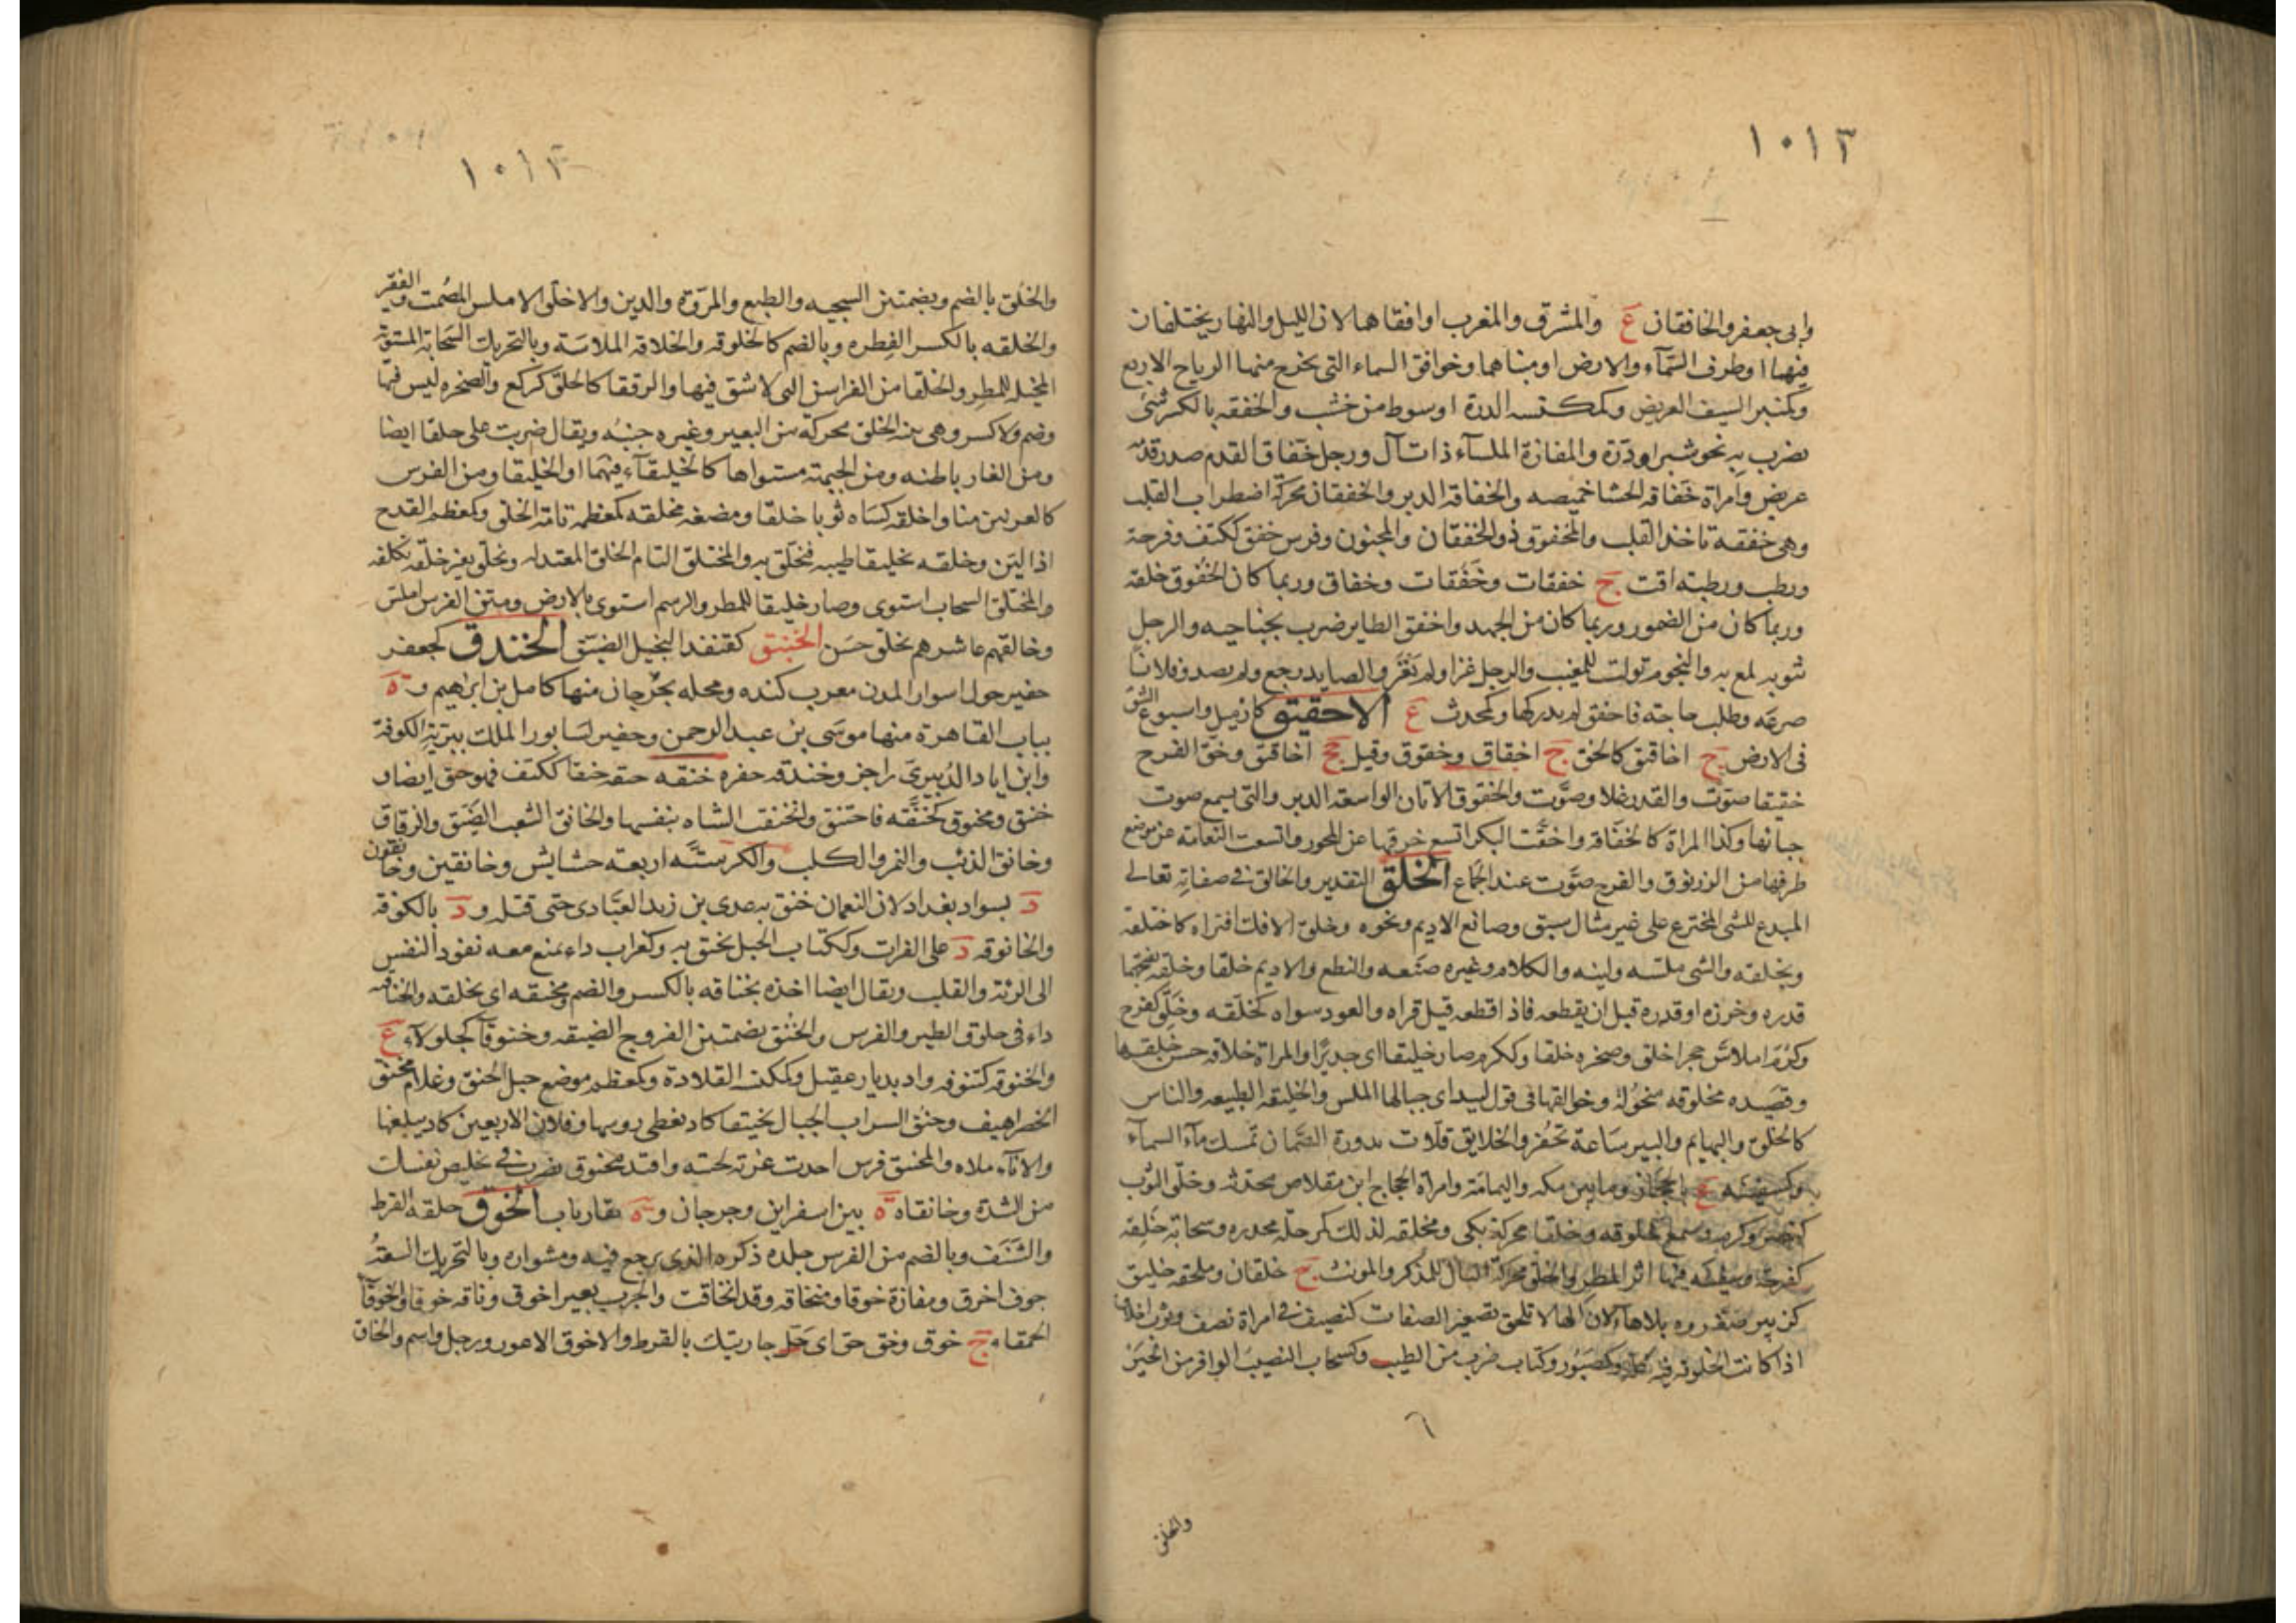 ١٠١٢
وابى جعفر والخافقان ع والمشرق والمغرب او افقاهما لان الليل والنهار يختلفان
فيهما او طرف السمآء والارض او منتهاهما وخوافق السماء التى يخرج منها الرياح الاربع
وكمنبر السيف العريض وكمكنسه الدرة او سوط من خشب والخفقه بالكسر شئ
يضرب به نحو شبر او درة والمفازة الملسآء ذات آل ورجل خفاق القدم صدر قدمه
عريض وامراة خفاقه الحشا خميصه والخفاقه الدبر والخفقان محركة اضطراب القلب
وهى خفقه تاخذ القلب والمخفوق ذو الخفقان والمجنون وفرس خفق ككتف وفرحة
ورطب ورطبه اقت ج خفقات وخفقات وخفاق وربما كان الخفوق خلقه
وربما كان من الضمور وربما كان من الجهد واخفق الطاير ضرب بجناحيه والرجل
بثوبه لمع به والنجوم تولت للمغيب والرجل غزا ولم يغنم والصايد رجع ولم يصد وفلانا
صرعه وطلب حاجته فاخفق لم يدركها وكمحدث ع الاخقيق كازميل واسبوع الشق
فى الارض ج اخاقيق كالخق ج اخقاق وخقوق وقيل جج اخاقيق وخق الفرج
خقيقا صوت والقدر غلا وصوت والخقوق الاتان الواسعه الدبر والتى يسمع صوت
حيائها وكذا المراة كالخقاقه واخقت البكرة اتسع خرقها عن المحور واتسعت النعامة عن موضع
طرفها من الزرنوق والفرج صوت عند الجماع الخلق التقدير والخالق فى صفاته تعالى
المبدع للشئ المخترع على غير مثال سبق وصانع الاديم ونحوه وخلق الافك افتراه كاختلقه
وتخلقه والشئ ملسه ولينه والكلام وغيره صنعه والنطع والاديم خلقا وخلقه بفتحهما
قدره وخرزه او قدره قبل ان يقطعه فاذا قطعه قيل فراه والعود سواه كخلقه وخلق كفرح
وكرم املاس حجر اخلق وصخره خلقا وككرم صار خليقا اى جديرا والمراة خلاقه حسن خلقها
وقصيده مخلوقه منحولة وخوالقها فى قول لبيد اى جبالها الملس والخليقه الطبيعه والناس
كالخلق والبهايم والبير ساعة تحفر والخلايق قلات بذروة الصمان تمسك مآء السمآء
وكسفينه ع بالحجاز وما بين مكه واليمامة وامراة الحجاج ابن مقلاص محدثه وخلق الثوب
كنصر وكرم وسمع خلوقه وخلقا محركة بلى ومخلقه لذلك حدره وسحابة خلقه
كفرحة وسفينه فيها اثر المطر والخلق محركة البال للمذكر والمونث ج خلقان وملحفه خليق
كزبير صغروه بلا هاء لان الها لا تلحق تصغير الصفات كنصيف فى امراة نصف وثوب اخلاق
اذا كانت الخلوقه فيه كله وكصبور وكتاب ضرب من الطيب وكسحاب النصيب الوافر من الخير
٦
والخلق
١٠١٣
والخلق بالضم وبضمتين السجيه والطبع والمروة والدين والاخلق الاملس المصمت والفقر
والخلقه بالكسر الفطره وبالضم كالخلوقه والخلاقه الملاسة وبالتحريك السحابة المستوية
المخيله للمطر والخلقا من الفراسن التى لا شق فيها والرتقا كالخلق كركع والصخره ليس فيها
وصم ولا كسر وهى بينه الخلق محركة من البعير وغيره جنبه ويقال ضربت على خلقا ايضا
ومن الغار باطنه ومن الجبهة مستواها كالخليقآء فيهما او الخليقا ومن الفرس
كالعرنين منا واخلقه كساه ثوبا خلقا ومضغه مخلقه كمعظمه تامة الخلق وكمعظم القدح
اذا لين وخلقه تخليقا طيبه فتخلق به والمختلق التام الخلق المعتدله وتخلق بغير خلقه تكلفه
واخلولق السحاب استوى وصار خليقا للمطر والرسم استوى بالارض ومتن الفرس املس
وخالقهم عاشرهم بخلق حسن الخنبق كقنفذ البخيل الضيق الخندق كجعفر
حفير حول اسوار المدن معرب كنده ومحله بجرجان منها كامل بن ابراهيم و ة
بباب القاهرة منها موسى بن عبد الرحمن وحفير لسابور الملك ببرية الكوفة
وابن اياد الدبيرى راجز وخندقه حفره خنقه خنقا ككتف فهو خنق ايضا و
خنيق ومخنوق كخنقه فاختنق وانخنقت الشاه بنفسها والخانق الشعب الضيق والزقاق
وخانق الذئب والنمر والكلب والكرسنه اربعة حشايش وخانقين وخانقون
د بسواد بغداد لان النعمان خنق به عدى بن زيد العبادى حتى قتله و د بالكوفة
والخانوقه د على الفرات وككتاب الحبل يخنق به وكغراب داء يمنع معه نفوذ النفس
الى الرئة والقلب ويقال ايضا اخذه بخناقه بالكسر والضم ومخنقه اى بحلقه والخناقيه
داء فى حلوق الطير والفرس والخنق بضمتين الفروج الضيقه وخنوقآ كجلولآء ع
والخنوقه كتنوفه واد بديار عقيل وكمكنسه القلادة وكمعظم موضع حبل الخنق وغلام مخنق
الخصر اهيف وخنق السراب الجبال تخنيقا كاد يغطى روسها وفلان الاربعين كاد يبلغها
والانآء ملاه والمخنق فرس اخذت غرته لحييه وافتد مخنوق يضرب فى تخليص نفسك
من الشدة وخانقاه ة بين اسفراين وجرجان و ة بفارياب الخوق حلقه القرط
والشنف وبالضم من الفرس جلدة ذكره الذى يرجع فيه ومشواره وبالتحريك السعة
جوف اخوق ومفازة خوقا ومنخاقه وقد انخاقت والجرب بعير اخوق وناقه خوقا والخوقآ
الحمقاء ج خوق وخق خق اى حل جاريتك بالقرط والاخوق الاعور ورجل واسم والخاق